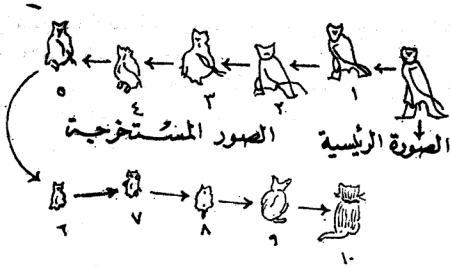 ٥ ٤ ٣ ٢ ١
الصور المستخرجة الصورة الرئيسية
٦ ٧ ٨ ٩ ١٠